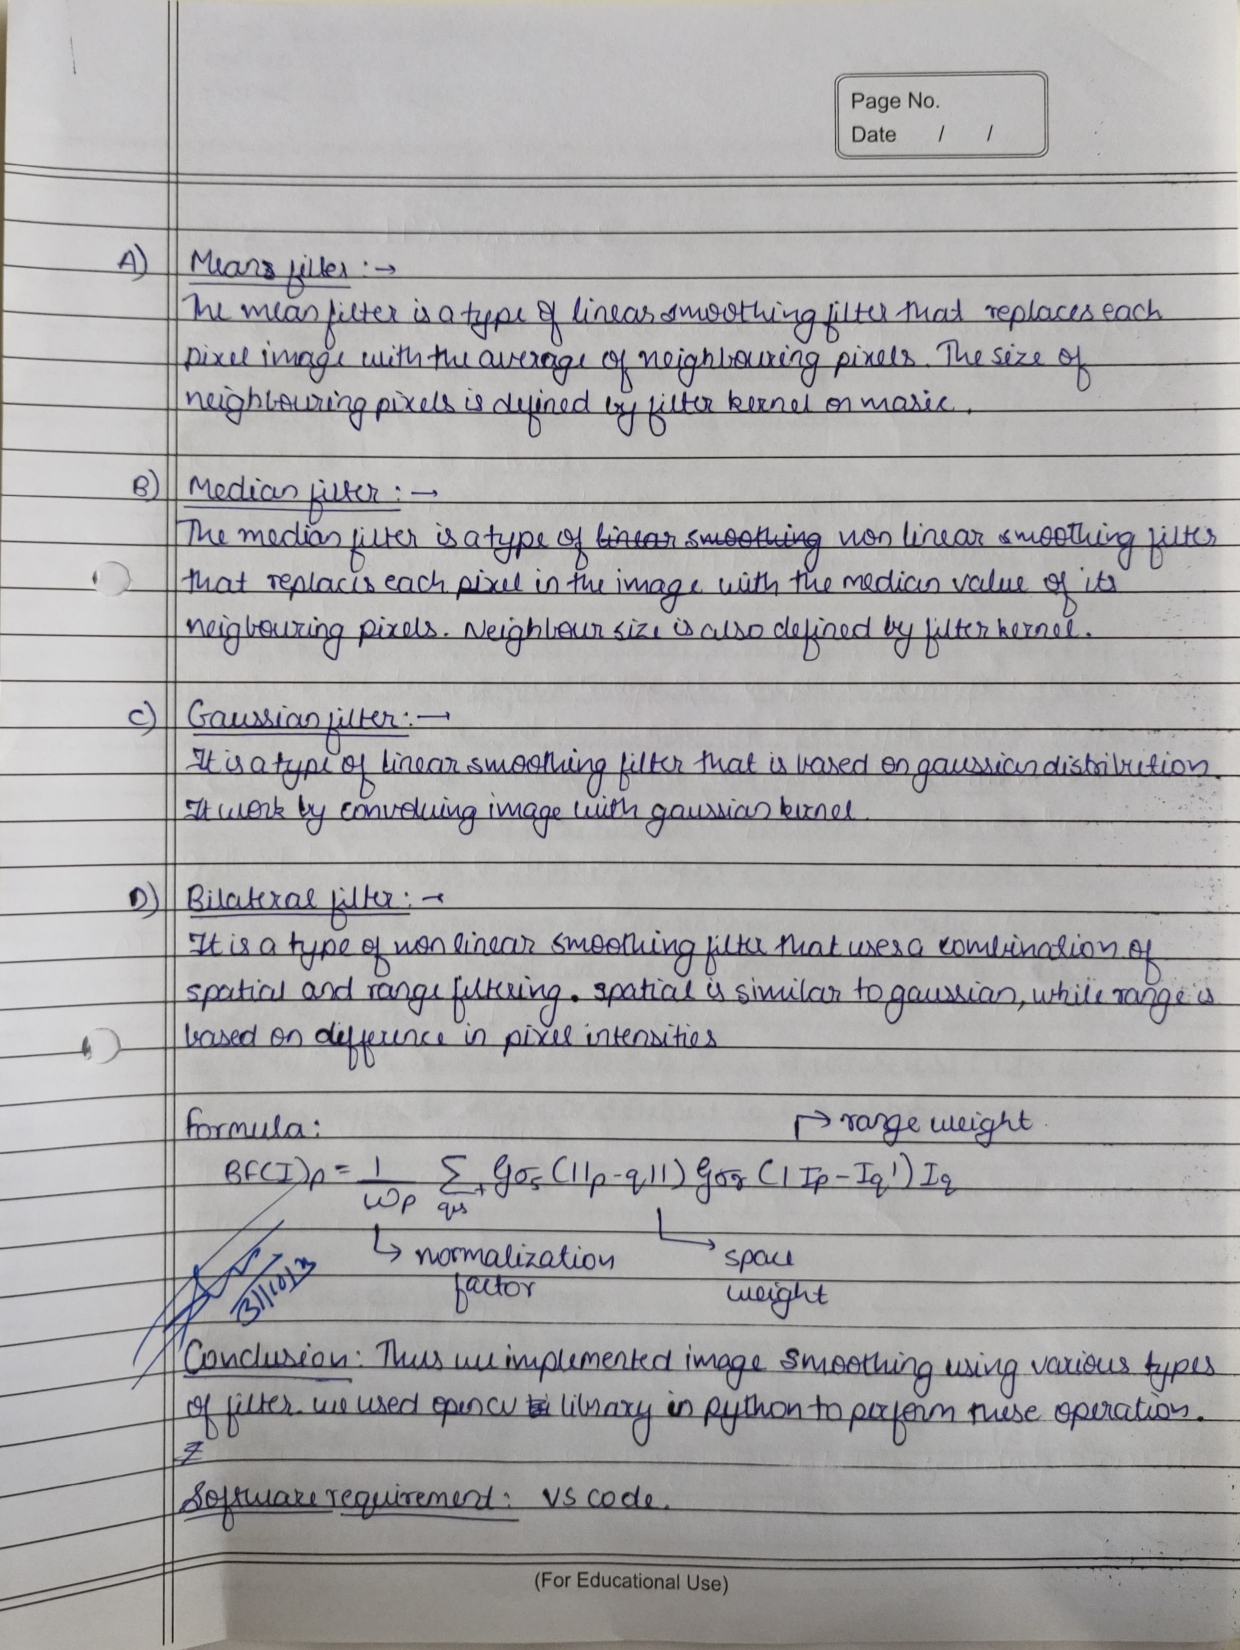 Page No.
Date / /
A) Mean filter :→
The mean filter is a type of linear smoothing filter that replaces each
pixel image with the average of neighbouring pixels. The size of
neighbouring pixels is defined by filter kernel or mask.
B) Median filter :→
The median filter is a type of linear smoothing non linear smoothing filter
that replaces each pixel in the image with the median value of its
neigbouring pixels. Neighbour size is also defined by filter kernel.
C) Gaussian filter :→
It is a type of linear smoothing filter that is based on gaussian distribution.
It work by convoluing image with gaussian kernel.
D) Bilateral filter :→
It is a type of non linear smoothing filter that uses a combination of
spatial and range filtering. spatial is similar to gaussian, while range is
based on difference in pixel intensities
formula: ↱ range weight
BF(I)p = 1/ωp Σ Gσs (||p-q||) Gσr (|Ip-Iq|) Iq
↳ normalization factor
↳ space weight
Conclusion: Thus we implemented image smoothing using various types
of filter. we used opencv library in python to perform these operation.
Software requirement: VS code.
(For Educational Use)